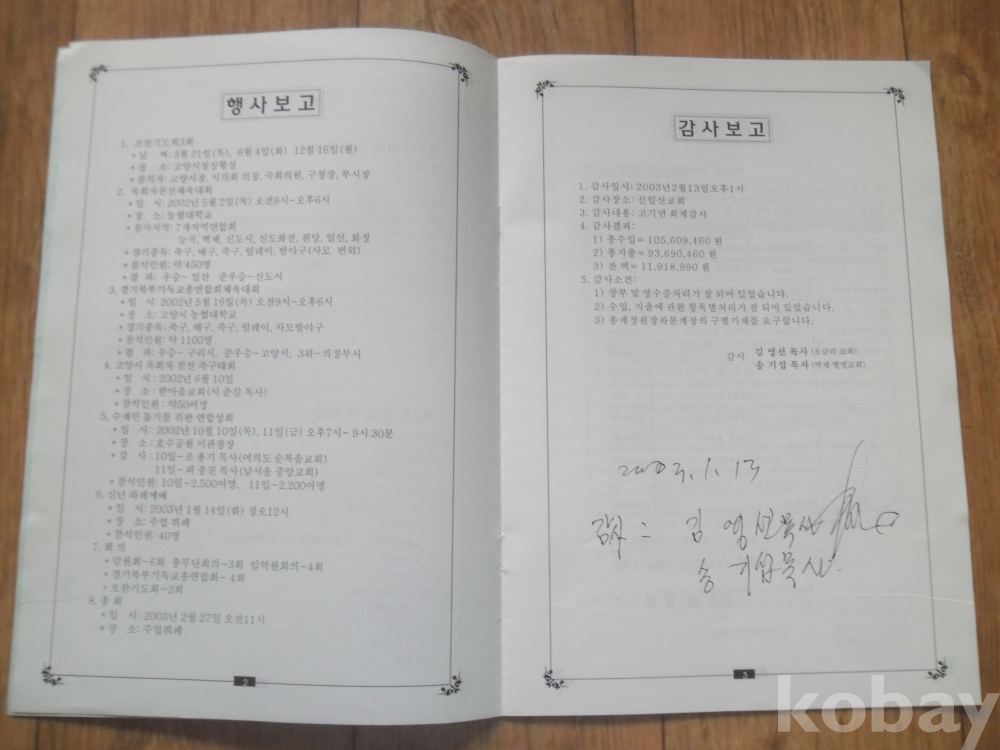 행사보고
1. 조찬기도회3회
* 날 짜: 3월 21일(목), 6월 4일(화) 12월 16일(월)
* 장 소: 고양시청상황실
* 참석자: 고양시장, 시의회 의장, 국회의원, 구청장, 부시장
2. 목회자친선체육대회
* 일 시: 2002년 5월 2일(목) 오전9시~오후6시
* 장소: 농협대학교
* 참가지역: 7개지역연합회
능곡, 벽제, 신도시, 신도화전, 원당, 일산, 화정
* 경기종목: 축구, 배구, 족구, 릴레이, 발야구(사모 번외)
* 참석인원: 약 450명
* 결 과: 우승- 일산 준우승-신도시
3. 경기북부기독교총연합회체육대회
* 일 시: 2002년 5월 16일(목) 오전9시~오후6시
* 장소: 고양시 농협대학교
* 경기종목: 축구, 배구, 족구, 릴레이, 사모발야구
* 참석인원: 약 1100명
* 결 과: 우승- 구리시, 준우승-고양시, 3위-의정부시
4. 고양시 목회자 친선 족구대회
* 일 시: 2002년 6월 10일
* 장 소: 한마음교회(서 준길 목사)
* 참석인원: 약50여명
5. 수재민 돕기를 위한 연합성회
* 일 시: 2002년 10월 10일(목), 11일(금) 오후7시~ 9시 30분
* 장 소: 호수공원 미관광장
* 강 사: 10일-조 용기 목사(여의도 순복음교회)
11일-피 종진 목사(남서울 중앙교회)
* 참석인원: 10일-2,500여명, 11일-2,200여명
6. 신년 하례예배
* 일 시: 2003년 1월 14일(화) 정오12시
* 장소: 주엽 뷔페
* 참석인원: 40명
7. 회 의
* 임원회-6회 총무단회의-3회 임역원회의-4회
* 경기북부기독교총연합회- 4회
* 오찬기도회-2회
8. 총 회
* 일 시: 2003년 2월 27일 오전11시
* 장 소: 주엽뷔페
2
감사보고
1. 감사일시: 2003년2월13일오후1시
2. 감사장소: 신일산교회
3. 감사내용: 고기연 회계감사
4. 감사결과:
1) 총수입= 105,609,460 원
2) 총지출= 93,690,460 원
3) 잔 액= 11,918,990 원
5. 감사소견:
1) 장부 및 영수증처리가 잘 되어 있었습니다.
2) 수입, 지출에 관한 항목별처리가 잘 되어 있었습니다.
3) 총계정원장과분계장의 구별기재를요구합니다.
감사 김 영선 목사(오금리 교회)
송 기섭 목사(벽제 벧엘교회)
2003. 1. 13
감사: 김 영선목사
송 기섭목사
3
kobay